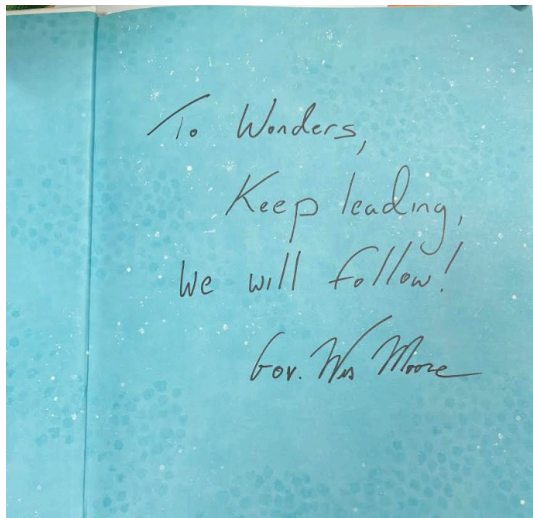 To Wonders,
Keep leading,
We will follow!
Gov. Wes Moore